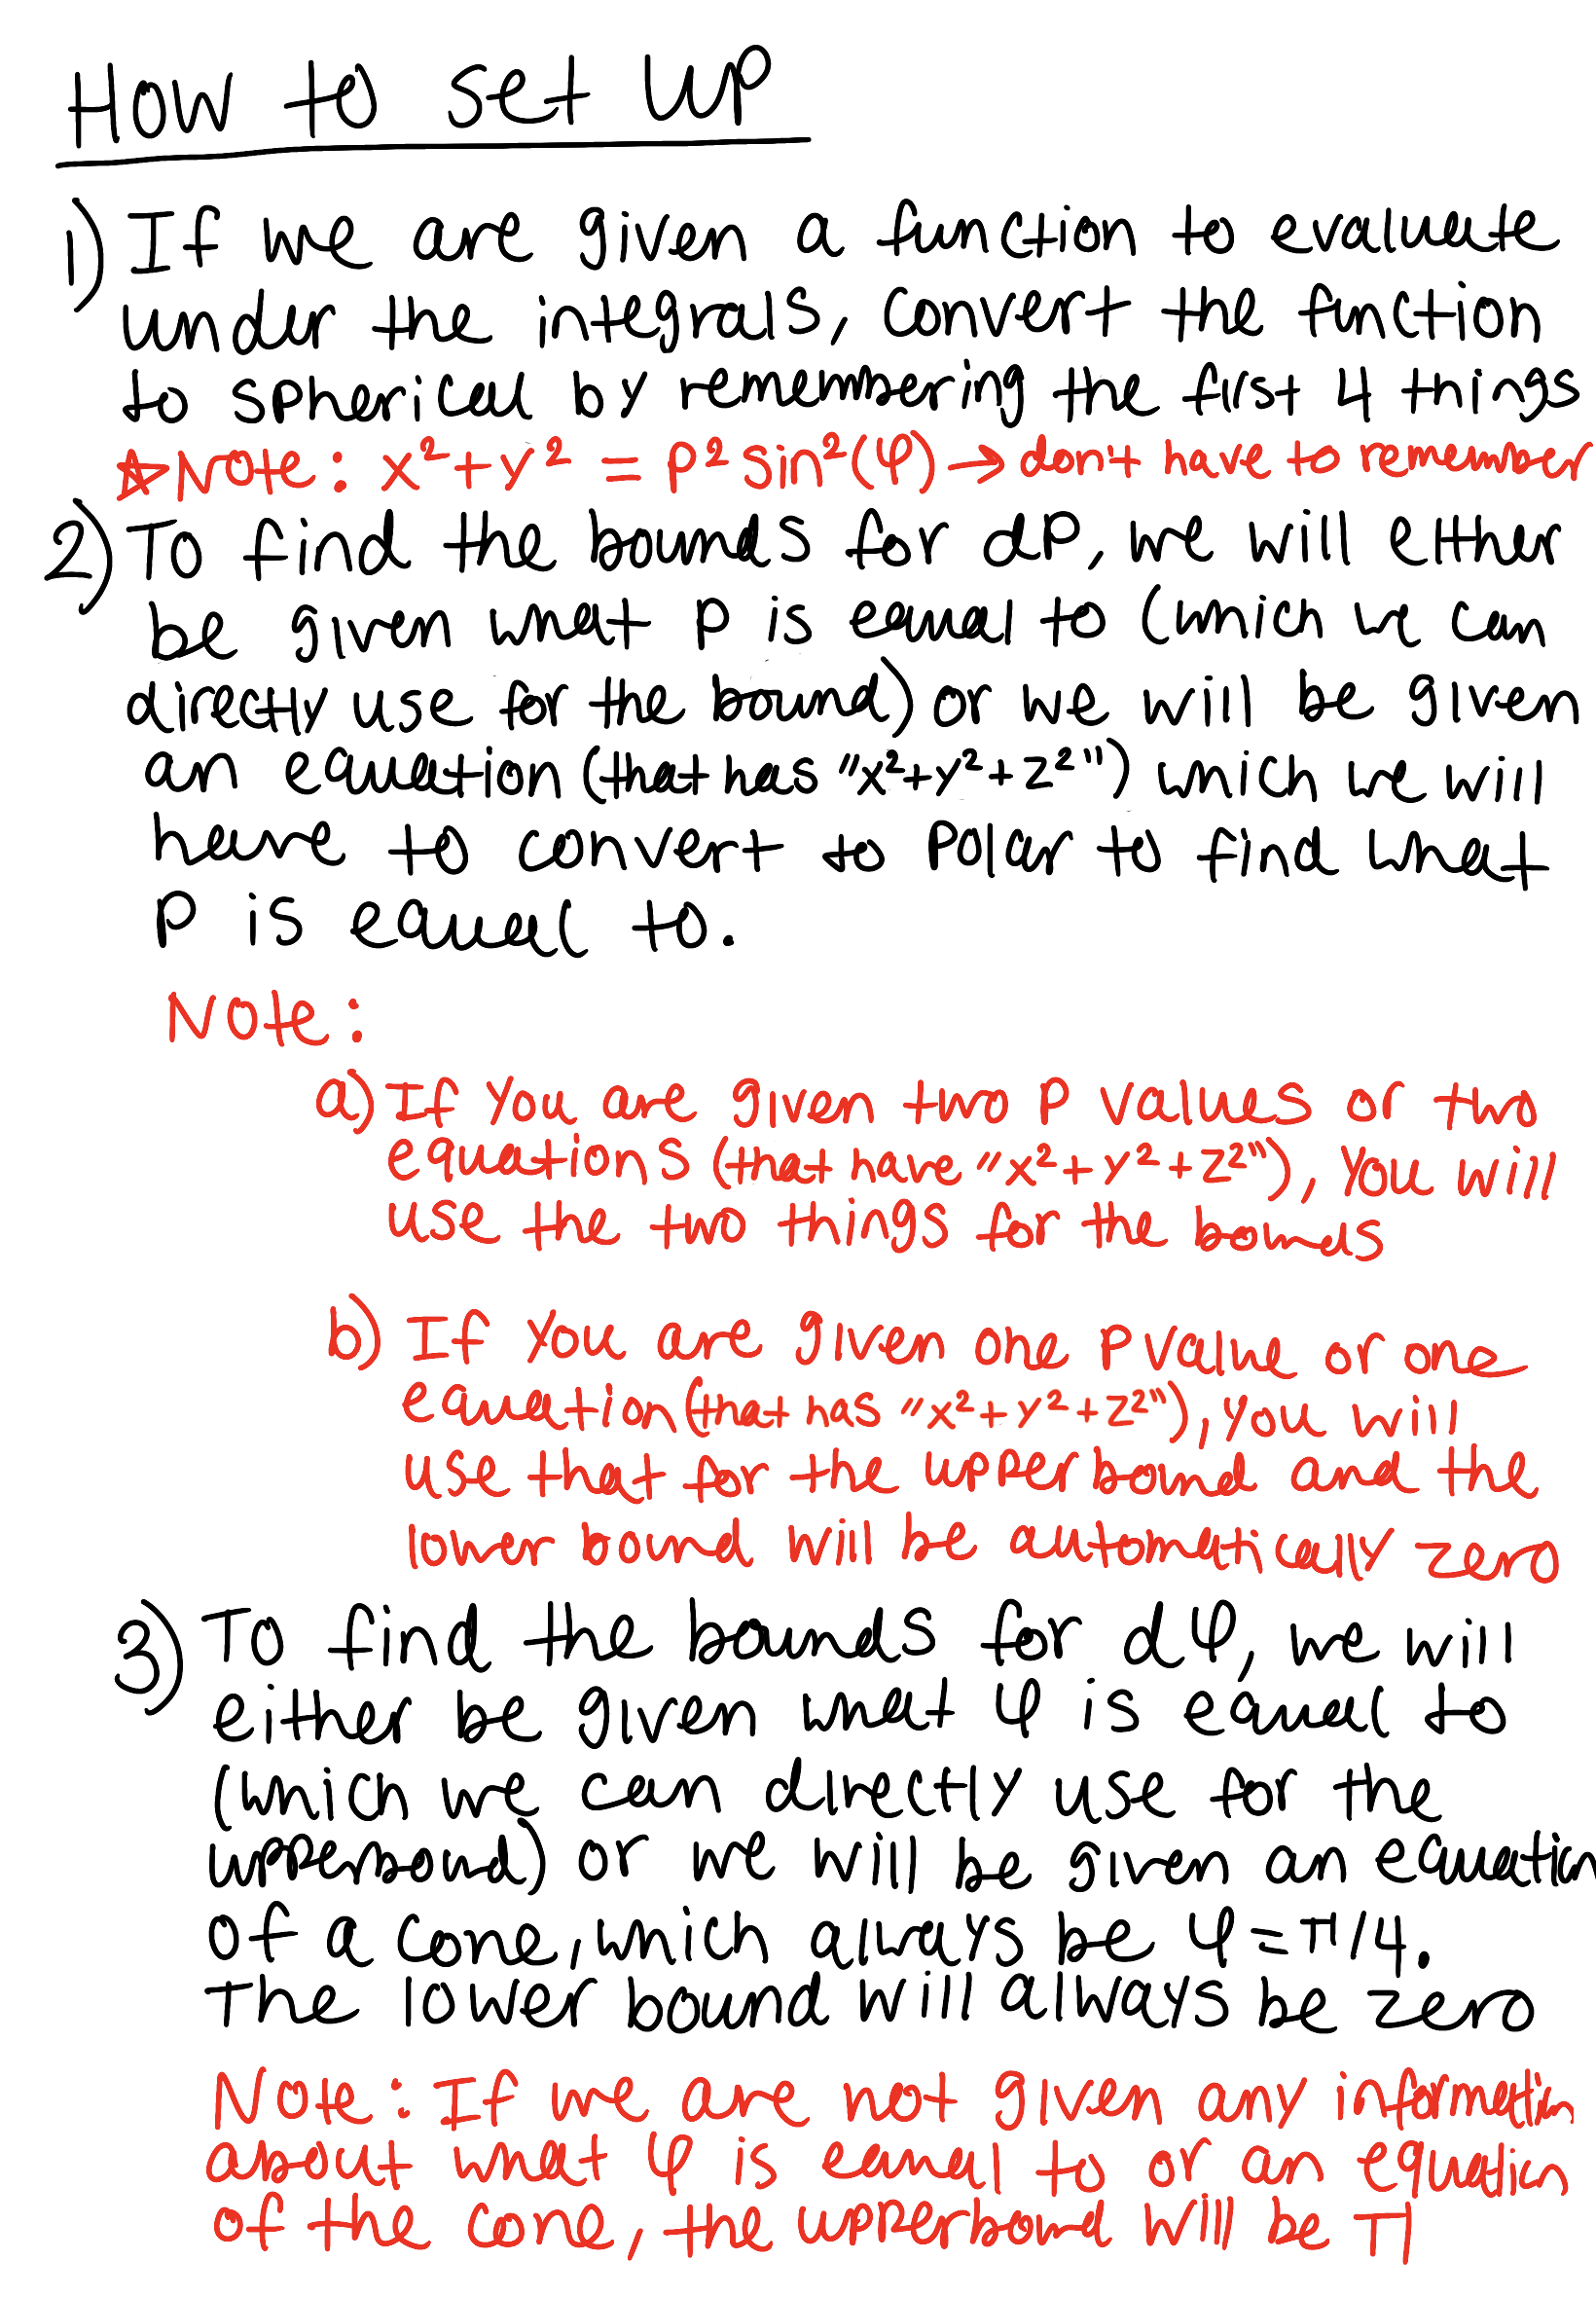 How to set up
1) If we are given a function to evaluate
under the integrals, convert the function
to spherical by remembering the first 4 things
☆Note: x²+y² = ρ² sin²(φ) → don't have to remember
2) To find the bounds for dρ, we will either
be given what ρ is equal to (which we can
directly use for the bound) or we will be given
an equation (that has "x²+y²+z²") which we will
have to convert to polar to find what
ρ is equal to.
Note:
a) If you are given two ρ values or two
equations (that have "x²+y²+z²"), you will
use the two things for the bounds
b) If you are given one ρ value or one
equation (that has "x²+y²+z²"), you will
use that for the upper bound and the
lower bound will be automatically zero
3) To find the bounds for dφ, we will
either be given what φ is equal to
(which we can directly use for the
upperbound) or we will be given an equation
of a cone, which always be φ=π/4.
The lower bound will always be zero
Note: If we are not given any information
about what φ is equal to or an equation
of the cone, the upperbound will be π